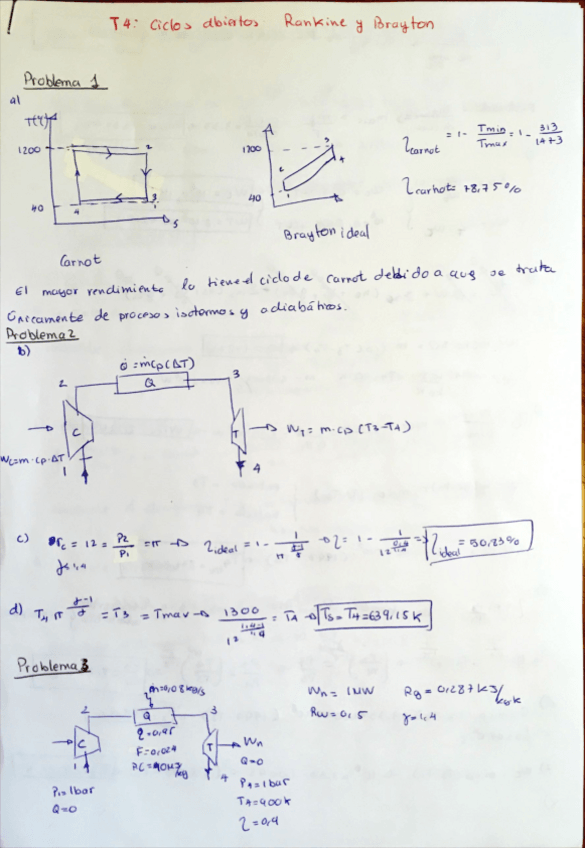 T4: Ciclos abiertos Rankine y Brayton
Problema 1
a)
T(ºC)
1200
40
2
3
4
S
Carnot
1200
40
1
2
3
4
Brayton ideal
η carnot = 1 - Tmin/Tmax = 1 - 313/1473
η carnot = 78,75%
El mayor rendimiento lo tiene el ciclo de carnot debido a que se trata
únicamente de procesos isotermos y adiabáticos.
Problema 2
b)
Q̇ = ṁCp(ΔT)
2
Q
3
C
T
Wc=m·cp·ΔT
1
4
WT = m·cp (T3-T4)
c) rc = 12 = P2/P1 = π → η ideal = 1 - 1/π^(γ-1/γ) → η = 1 - 1/12^(0,4/1,4) ⇒ η ideal = 50,83%
γ = 1,4
d) T4 π^(γ-1/γ) = T3 = Tmax → 1300/12^(1,4-1/1,4) = T4 → T5 = T4 = 639,15 K
Problema 3
ṁ=0,08 kg/s
2
Q
3
C
T
1
4
η = 0,95
F = 0,024
PC = 40MJ/kg
P1 = 1bar
Q=0
Wn
Q=0
P4 = 1bar
T4 = 900K
η = 0,9
Wn = 1MW
Rw = 0,5
Rg = 0,287 kJ/kg·K
γ = 1,4